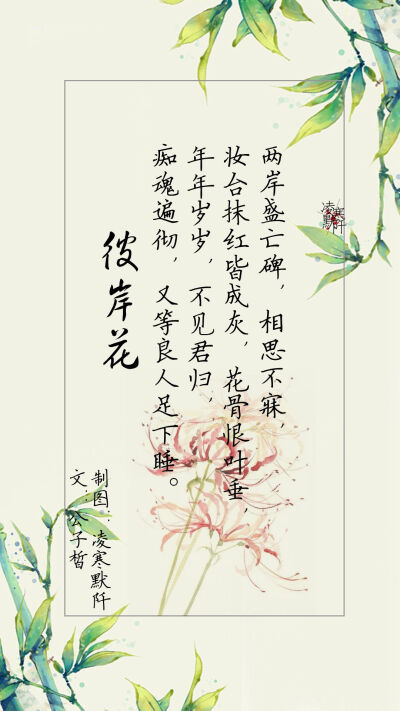 两岸盛亡碑，相思不寐，
妆台抹红皆成灰，花骨恨叶垂，
年年岁岁，不见君归，
痴魂遍彻，又等良人足下睡。
彼岸花
制图：凌寒默阡
文：公子皙
凌寒
默阡